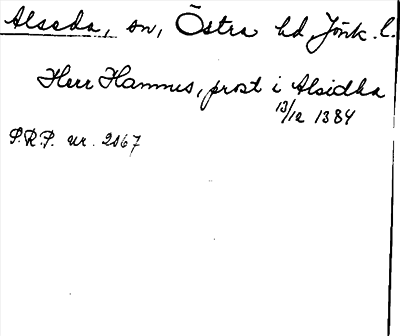 Alseda, sn, Östra hd Jönk. l.
Herr Hannus, prost i Alsidha
13/12 1384
S.R.P. nr. 2067